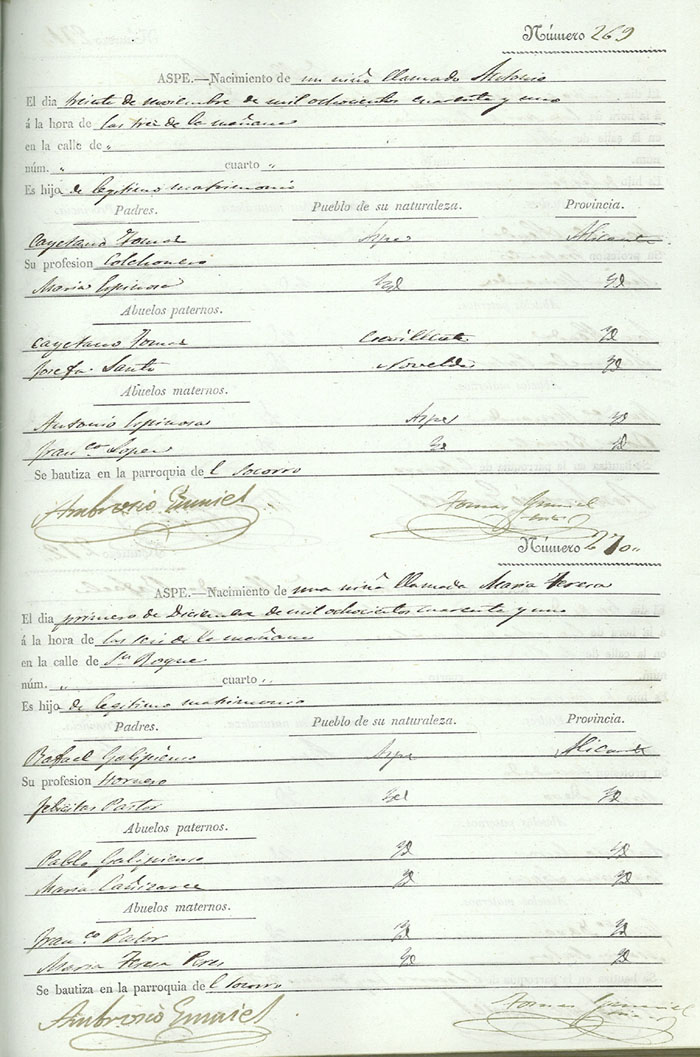 Número 269
ASPE.—Nacimiento de un niño llamado Antonio
El dia treinta de noviembre de mil ochocientos cuarenta y uno
á la hora de las tres de la mañana
en la calle de "
núm. " cuarto "
Es hijo de legitimo matrimonio
Padres. Pueblo de su naturaleza. Provincia.
Cayetano Tomas Aspe Alicante
Su profesion Colchonero
Maria Espinosa Yd Yd
Abuelos paternos.
Cayetano Tomas Crevillente Yd
Josefa Santo Novelda Yd
Abuelos maternos.
Antonio Espinosa Aspe Yd
Franca Lopez Yd Yd
Se bautiza en la parroquia de l Socorro
Ambrosio
Tomas
Número 270"
ASPE.—Nacimiento de una niña llamada Maria Teresa
El dia primero de Diciembre de mil ochocientos cuarenta y uno
á la hora de las seis de la mañana
en la calle de Sn Roque
núm. " cuarto "
Es hijo de legitimo matrimonio
Padres. Pueblo de su naturaleza. Provincia.
Rafael Galipienso Aspe Alicante
Su profesion Hornero
Felicitas Pastor Yd Yd
Abuelos paternos.
Pablo Galipienso Yd Yd
Maria Cañizares Yd Yd
Abuelos maternos.
Franco Pastor Yd Yd
Maria Teresa Peres Yd Yd
Se bautiza en la parroquia de l Socorro
Ambrosio
Tomas